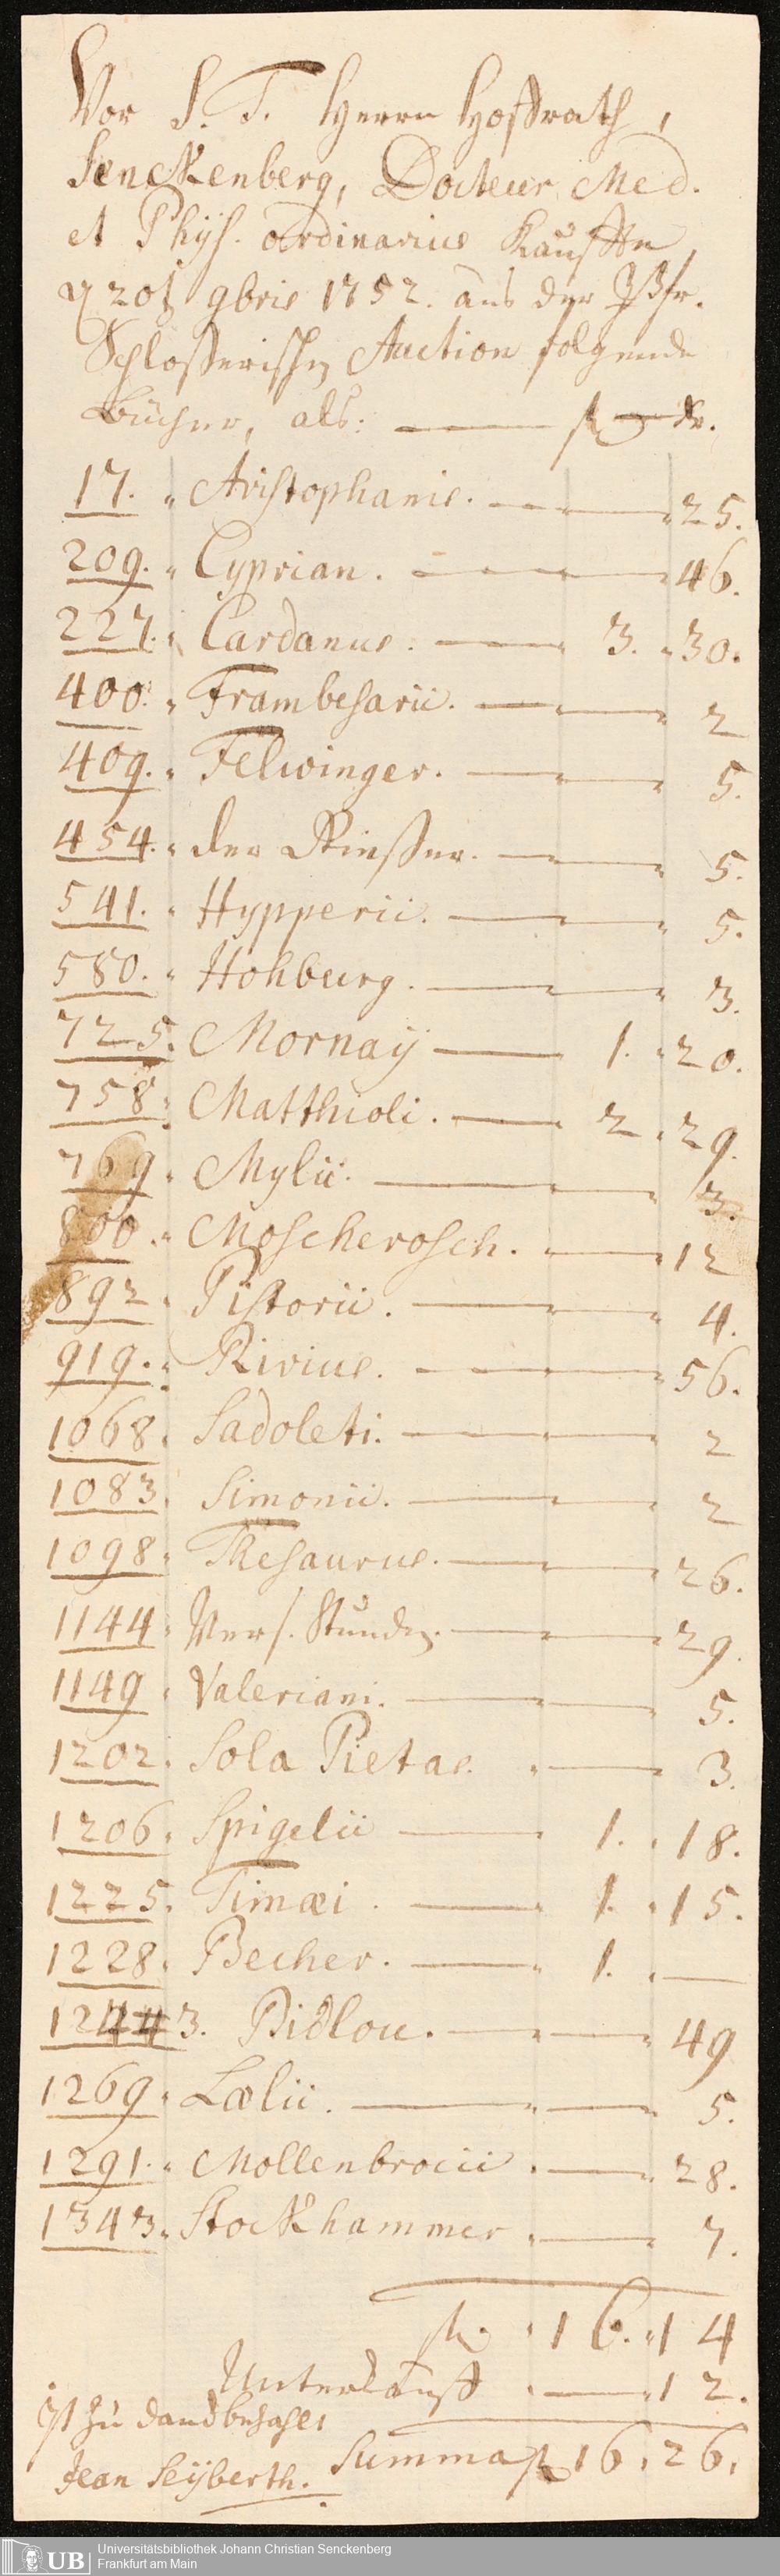 Vor S. T. Herrn Hoffrath,
Senckenberg, Docteur Med.
et Phÿs. ordinarius Kaufften
20t 9bris 1752. aus der
Schloßerischen Auction folgende
Bücher, als: — f — Kr.
17. Aristophanis. — 25.
209. Cyprian. — 46.
227. Cardanus. — 3. 30.
400. Frambesarii. — 2
409. Felwinger. — 5.
454. der — 5.
541. Hypperii. — 5.
580. Hohburg. — 3.
725. Mornaÿ — 1. 20.
758. Matthioli. — 2. 29.
769. Mylii. — 3.
800. Moscherosch. — 12
892. Pistorii. — 4.
919. Rivius. — 56.
1068. Sadoleti. — 2
1083. Simonii. — 2
1098. Thesaurus. — 26.
1144. Stunden. — 29.
1149. Valeriani. — 5.
1202. Sola Pietas. — 3.
1206. Spigelii — 1. 18.
1225. Timæi. — 1. 15.
1228. Becher. — 1. —
12443. Bidlou. — 49
1269. Lælii. — 5.
1291. Mollenbrocii. — 28.
1343. Stockhammer. — 7.
f. 16. 14
Unterkauff — 12.
ist zu danck bezahlt
Jean Seÿberth. Summa f 16. 26.
UB Universitätsbibliothek Johann Christian Senckenberg
Frankfurt am Main